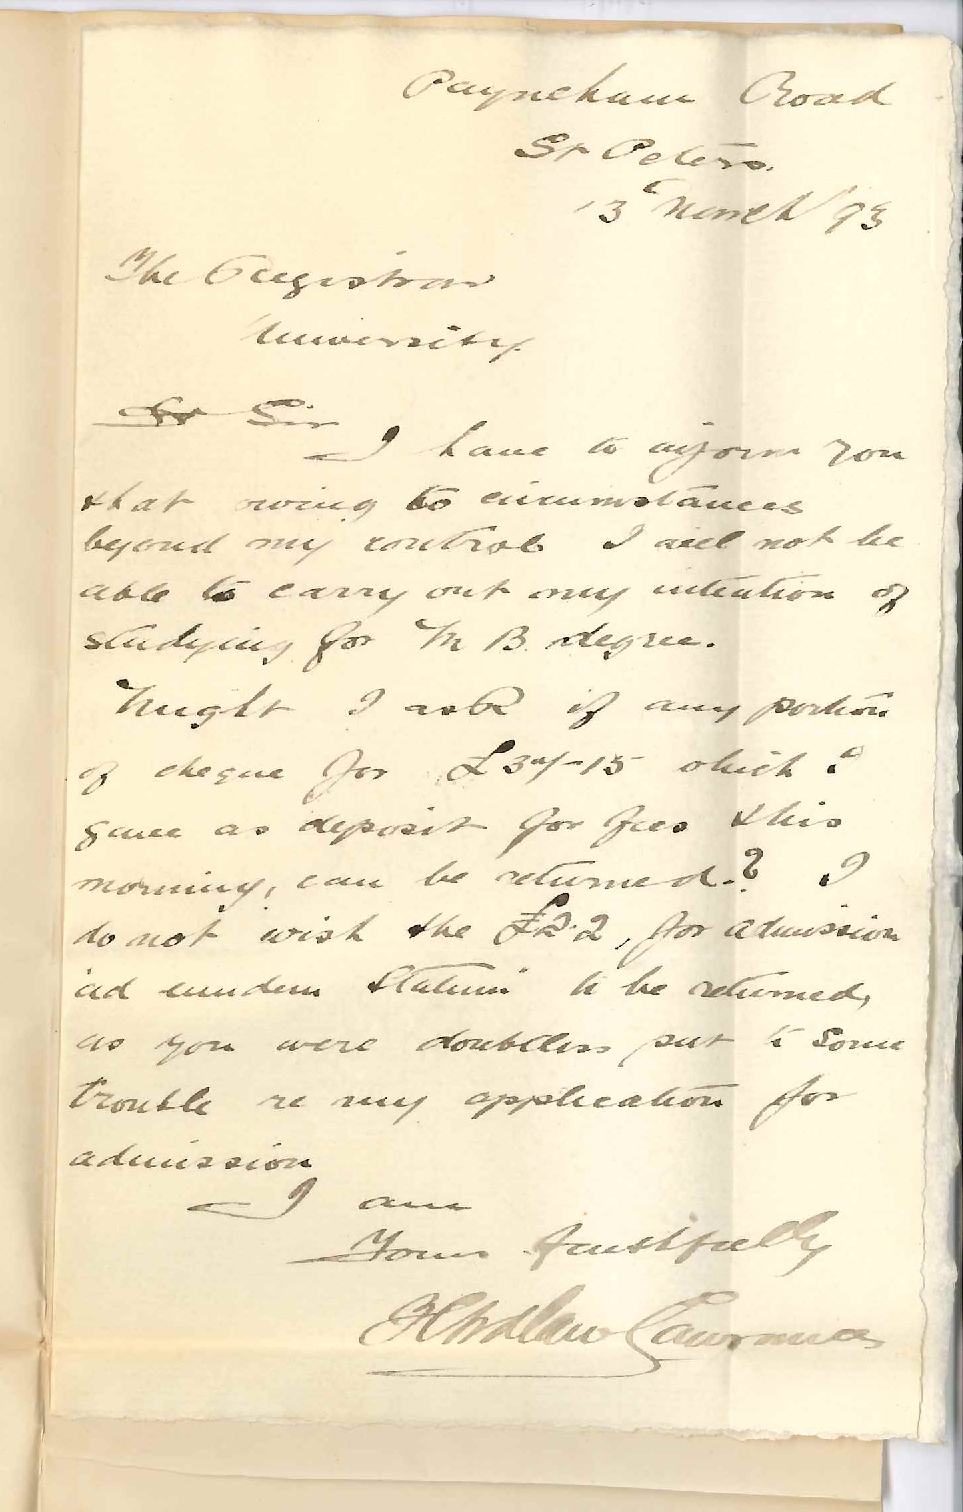 Payneham Road
St Peters.
13 March '93
The Registrar
University.
Dr Sir
I have to inform you
that owing to circumstances
beyond my control I will not be
able to carry out my intention of
studying for M B. degree.
Might I ask if any portion
of cheque for £ 15 which I
gave as deposit for fees this
morning, can be returned.? I
do not wish the £2.2, for admission
"ad eundem Statum" to be returned,
as you were doubtless put to some
trouble re my application for
admission
I am
Yours faithfully
Lawrance